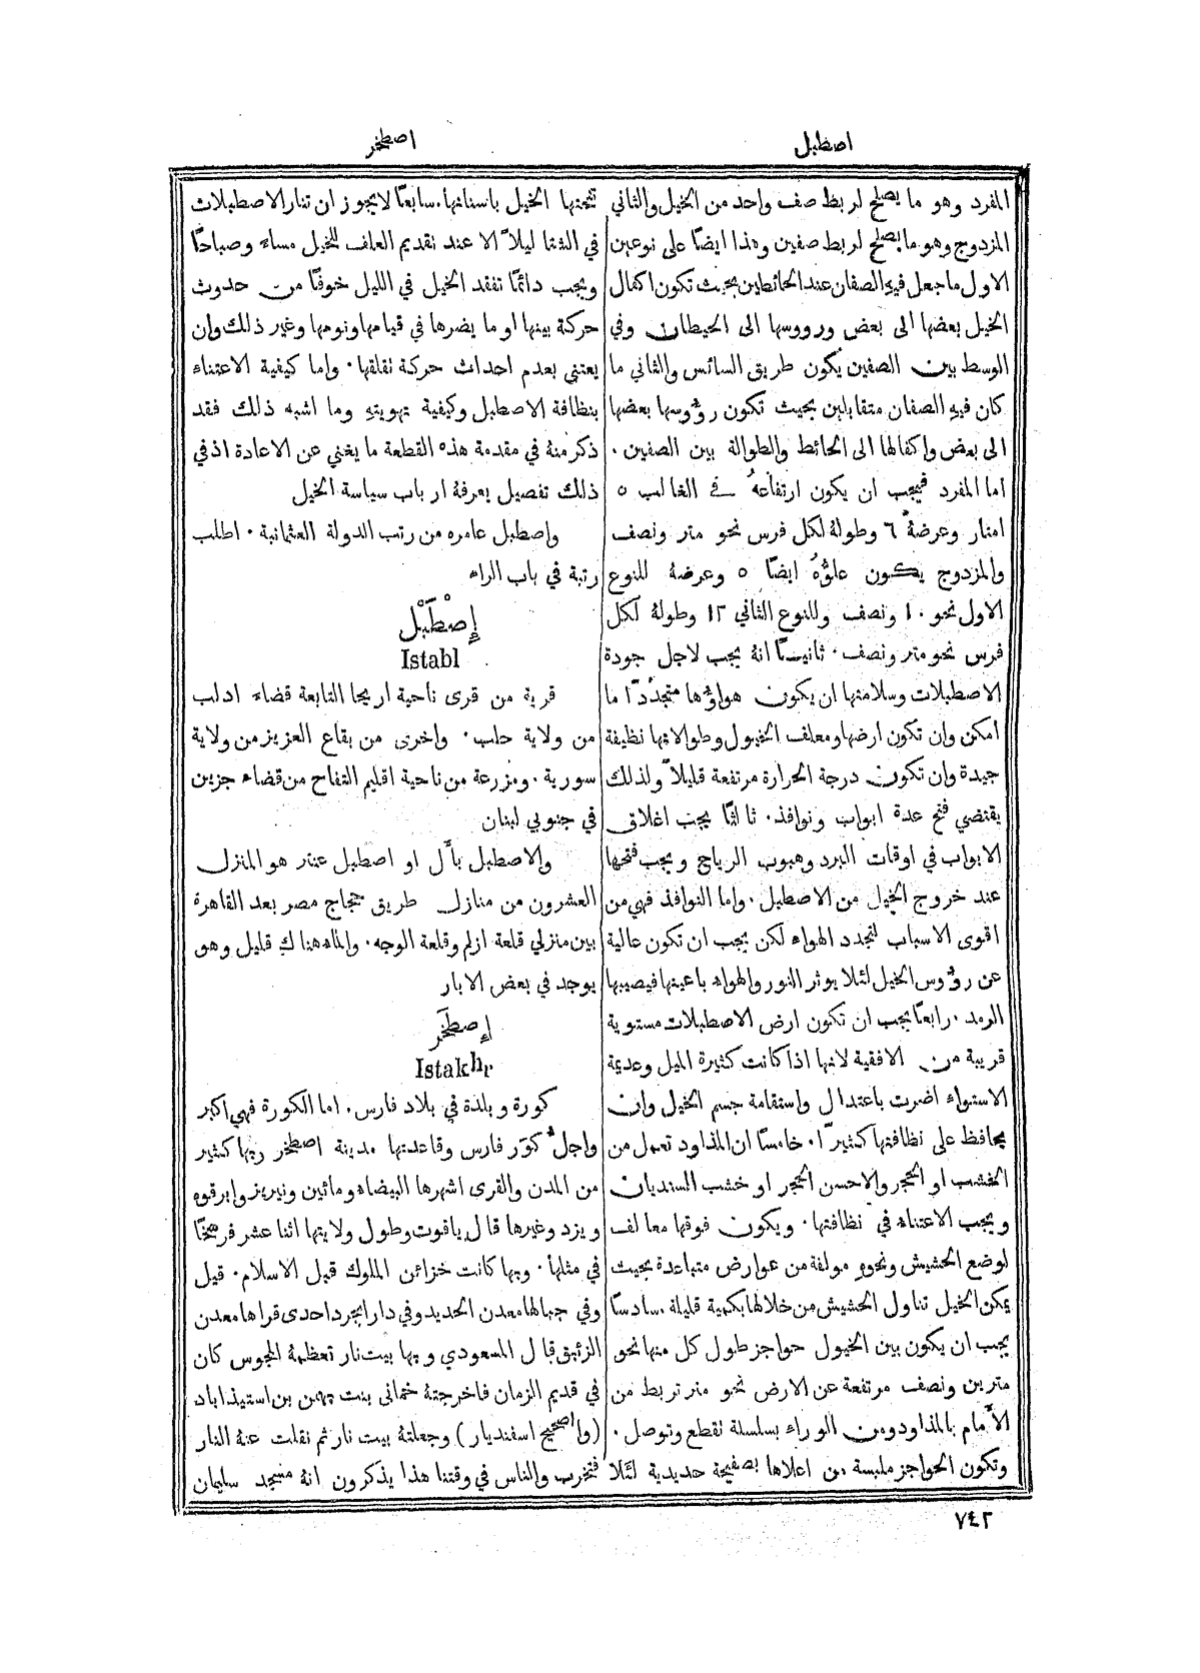 اصطبل
اصطخر
المفرد وهو ما يصلح لربط صف واحد من الخيل والثاني
المزدوج وهو ما يصلح لربط صفين وهذا ايضًا على نوعين
الاول ما جعل فيهِ الصفان عند الحائطين بحيث تكون اكفال
الخيل بعضها الى بعض ورووسها الى الحيطان وفي
الوسط بين الصفين يكون طريق السائس والثاني ما
كان فيهِ الصفان متقابلين بحيث تكون رؤوسها بعضها
الى بعض واكفالها الى الحائط والطوالة بين الصفين .
اما المفرد فيجب ان يكون ارتفاعهُ في الغالب ٥
امتار وعرضهُ ٦ وطولهُ لكل فرس نحو متر ونصف
والمزدوج يكون علوُّهُ ايضًا ٥ وعرضهُ للنوع
الاول نحو ١٠ ونصف وللنوع الثاني ١٢ وطولهُ لكل
فرس نحو متر ونصف . ثانيًا انهُ يجب لاجل جودة
الاصطبلات وسلامتها ان يكون هواؤها متجددًا ما
امكن وان تكون ارضها ومعلف الخيول وطوالاتها نظيفة
جيدة وان تكون درجة الحرارة مرتفعة قليلاً ولذلك
يقتضي فتح عدة ابواب ونوافذ . ثالثًا يجب اغلاق
الابواب في اوقات البرد وهبوب الرياح ويجب فتحها
عند خروج الخيل من الاصطبل . واما النوافذ فهي من
اقوى الاسباب لتجدد الهواء لكن يجب ان تكون عالية
عن رؤوس الخيل لئلا يوثر النور والهواء باعينها فيصيبها
الرمد . رابعًا يجب ان تكون ارض الاصطبلات مستوية
قريبة من الافقية لانها اذا كانت كثيرة الميل وعديمة
الاستواء اضرت باعتدال واستقامة جسم الخيل وان
يحافظ على نظافتها كثيرًا . خامسًا ان المذاود تعمل من
الخشب او الحجر والاحسن الحجر او خشب السنديان
ويجب الاعتناء في نظافتها . ويكون فوقها معالف
لوضع الحشيش ونحوهِ مولفة من عوارض متباعدة بحيث
يمكن الخيل تناول الحشيش من خلالها بكمية قليلة . سادسًا
يجب ان يكون بين الخيول حواجز طول كل منها نحو
مترين ونصف مرتفعة عن الارض نحو متر تربط من
الأمام بالمذاود ومن الوراء بسلسلة تقطع وتوصل .
وتكون الحواجز ملبسة من اعلاها بصفيحة حديدية لئلا
تنحتها الخيل باسنانها . سابعًا لا يجوز ان تنار الاصطبلات
في الشتا ليلاً الا عند تقديم العلف للخيل مساء وصباحًا
ويجب دائمًا تفقد الخيل في الليل خوفًا من حدوث
حركة بينها او ما يضرها في قيامها ونومها وغير ذلك وان
يعتني بعدم احداث حركة تقلقها . واما كيفية الاعتناء
بنظافة الاصطبل وكيفية تهويتهِ وما اشبه ذلك فقد
ذكر منهُ في مقدمة هذه القطعة ما يغني عن الاعادة اذ في
ذلك تفصيل يعرفهُ ارباب سياسة الخيل
واصطبل عامره من رتب الدولة العثمانية . اطلب
رتبة في باب الراء
إِصْطَبْل
Istabl
قرية من قرى ناحية اريحا التابعة قضاء ادلب
من ولاية حلب . واخرى من بقاع العزيز من ولاية
سورية . ومزرعة من ناحية اقليم التفاح من قضاء جزين
في جنوبي لبنان
والاصطبل بأَل او اصطبل عنتر هو المنزل
العشرون من منازل طريق حجاج مصر بعد القاهرة
بين منزلي قلعة ازلم وقلعة الوجه . والماء هناك قليل وهو
يوجد في بعض الابار
إِصطَخر
Istakhr
كورة وبلدة في بلاد فارس . اما الكورة فهي اكبر
واجلّ كوَر فارس وقاعدتها مدينة اصطخر وبها كثير
من المدن والقرى اشهرها البيضاء ومائين ونيريز وابرقوه
ويزد وغيرها قال ياقوت وطول ولايتها اثنا عشر فرسخًا
في مثلها . وبها كانت خزائن الملوك قبل الاسلام . قيل
وفي جبالها معدن الحديد وفي دارابجرد احدى قراها معدن
الزئبق قال المسعودي وبها بيت نار تعظمهُ المجوس كان
في قديم الزمان فاخرجتهُ خمانى بنت بهمن بن استيذاباد
(والصحيح اسفنديار) وجعلتهُ بيت نار ثم نقلت عنهُ النار
فتخرب والناس في وقتنا هذا يذكرون انهُ مسجد سليمان
٧٤٢